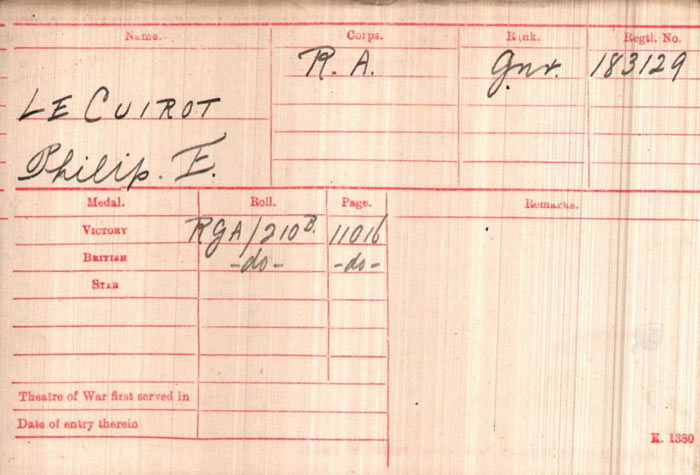 Name. Corps. Rank. Regtl. No.
R.A. Gnr. 183129
LE CUIROT
Philip. E.
Medal. Roll. Page. Remarks.
VICTORY RGA/210B. 11016
BRITISH -do- -do-
STAR
Theatre of War first served in
Date of entry therein
K. 1380